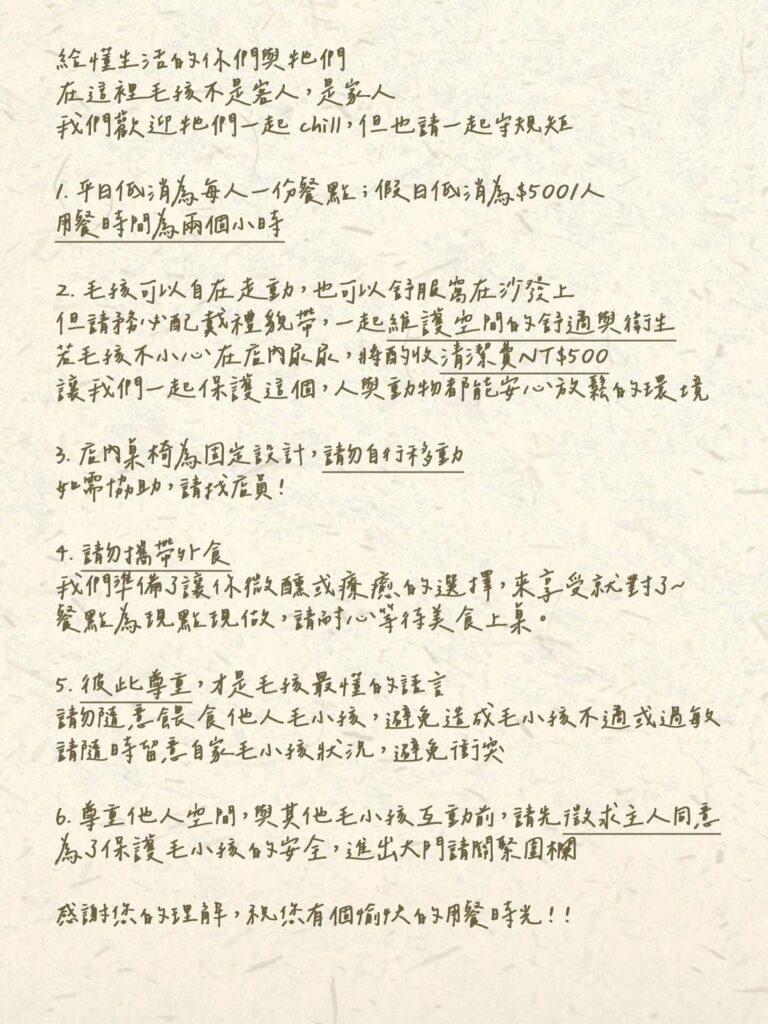 給懂生活的你們與牠們
在這裡毛孩不是客人，是家人
我們歡迎牠們一起 chill，但也請一起守規矩
1. 平日低消為每人一份餐點；假日低消為$500/人
用餐時間為兩個小時
2. 毛孩可以自在走動，也可以舒服窩在沙發上
但請務必配戴禮貌帶，一起維護空間的舒適與衛生
若毛孩不小心在店內尿尿，將酌收清潔費NT$500
讓我們一起保護這個，人與動物都能安心放鬆的環境
3. 店內桌椅為固定設計，請勿自行移動
如需協助，請找店員！
4. 請勿攜帶外食
我們準備了讓你微醺或療癒的選擇，來享受就對了~
餐點為現點現做，請耐心等待美食上桌。
5. 彼此尊重，才是毛孩最懂的語言
請勿隨意餵食他人毛小孩，避免造成毛小孩不適或過敏
請隨時留意自家毛小孩狀況，避免衝突
6. 尊重他人空間，與其他毛小孩互動前，請先徵求主人同意
為了保護毛小孩的安全，進出大門請關緊圍欄
感謝您的理解，祝您有個愉快的用餐時光！！